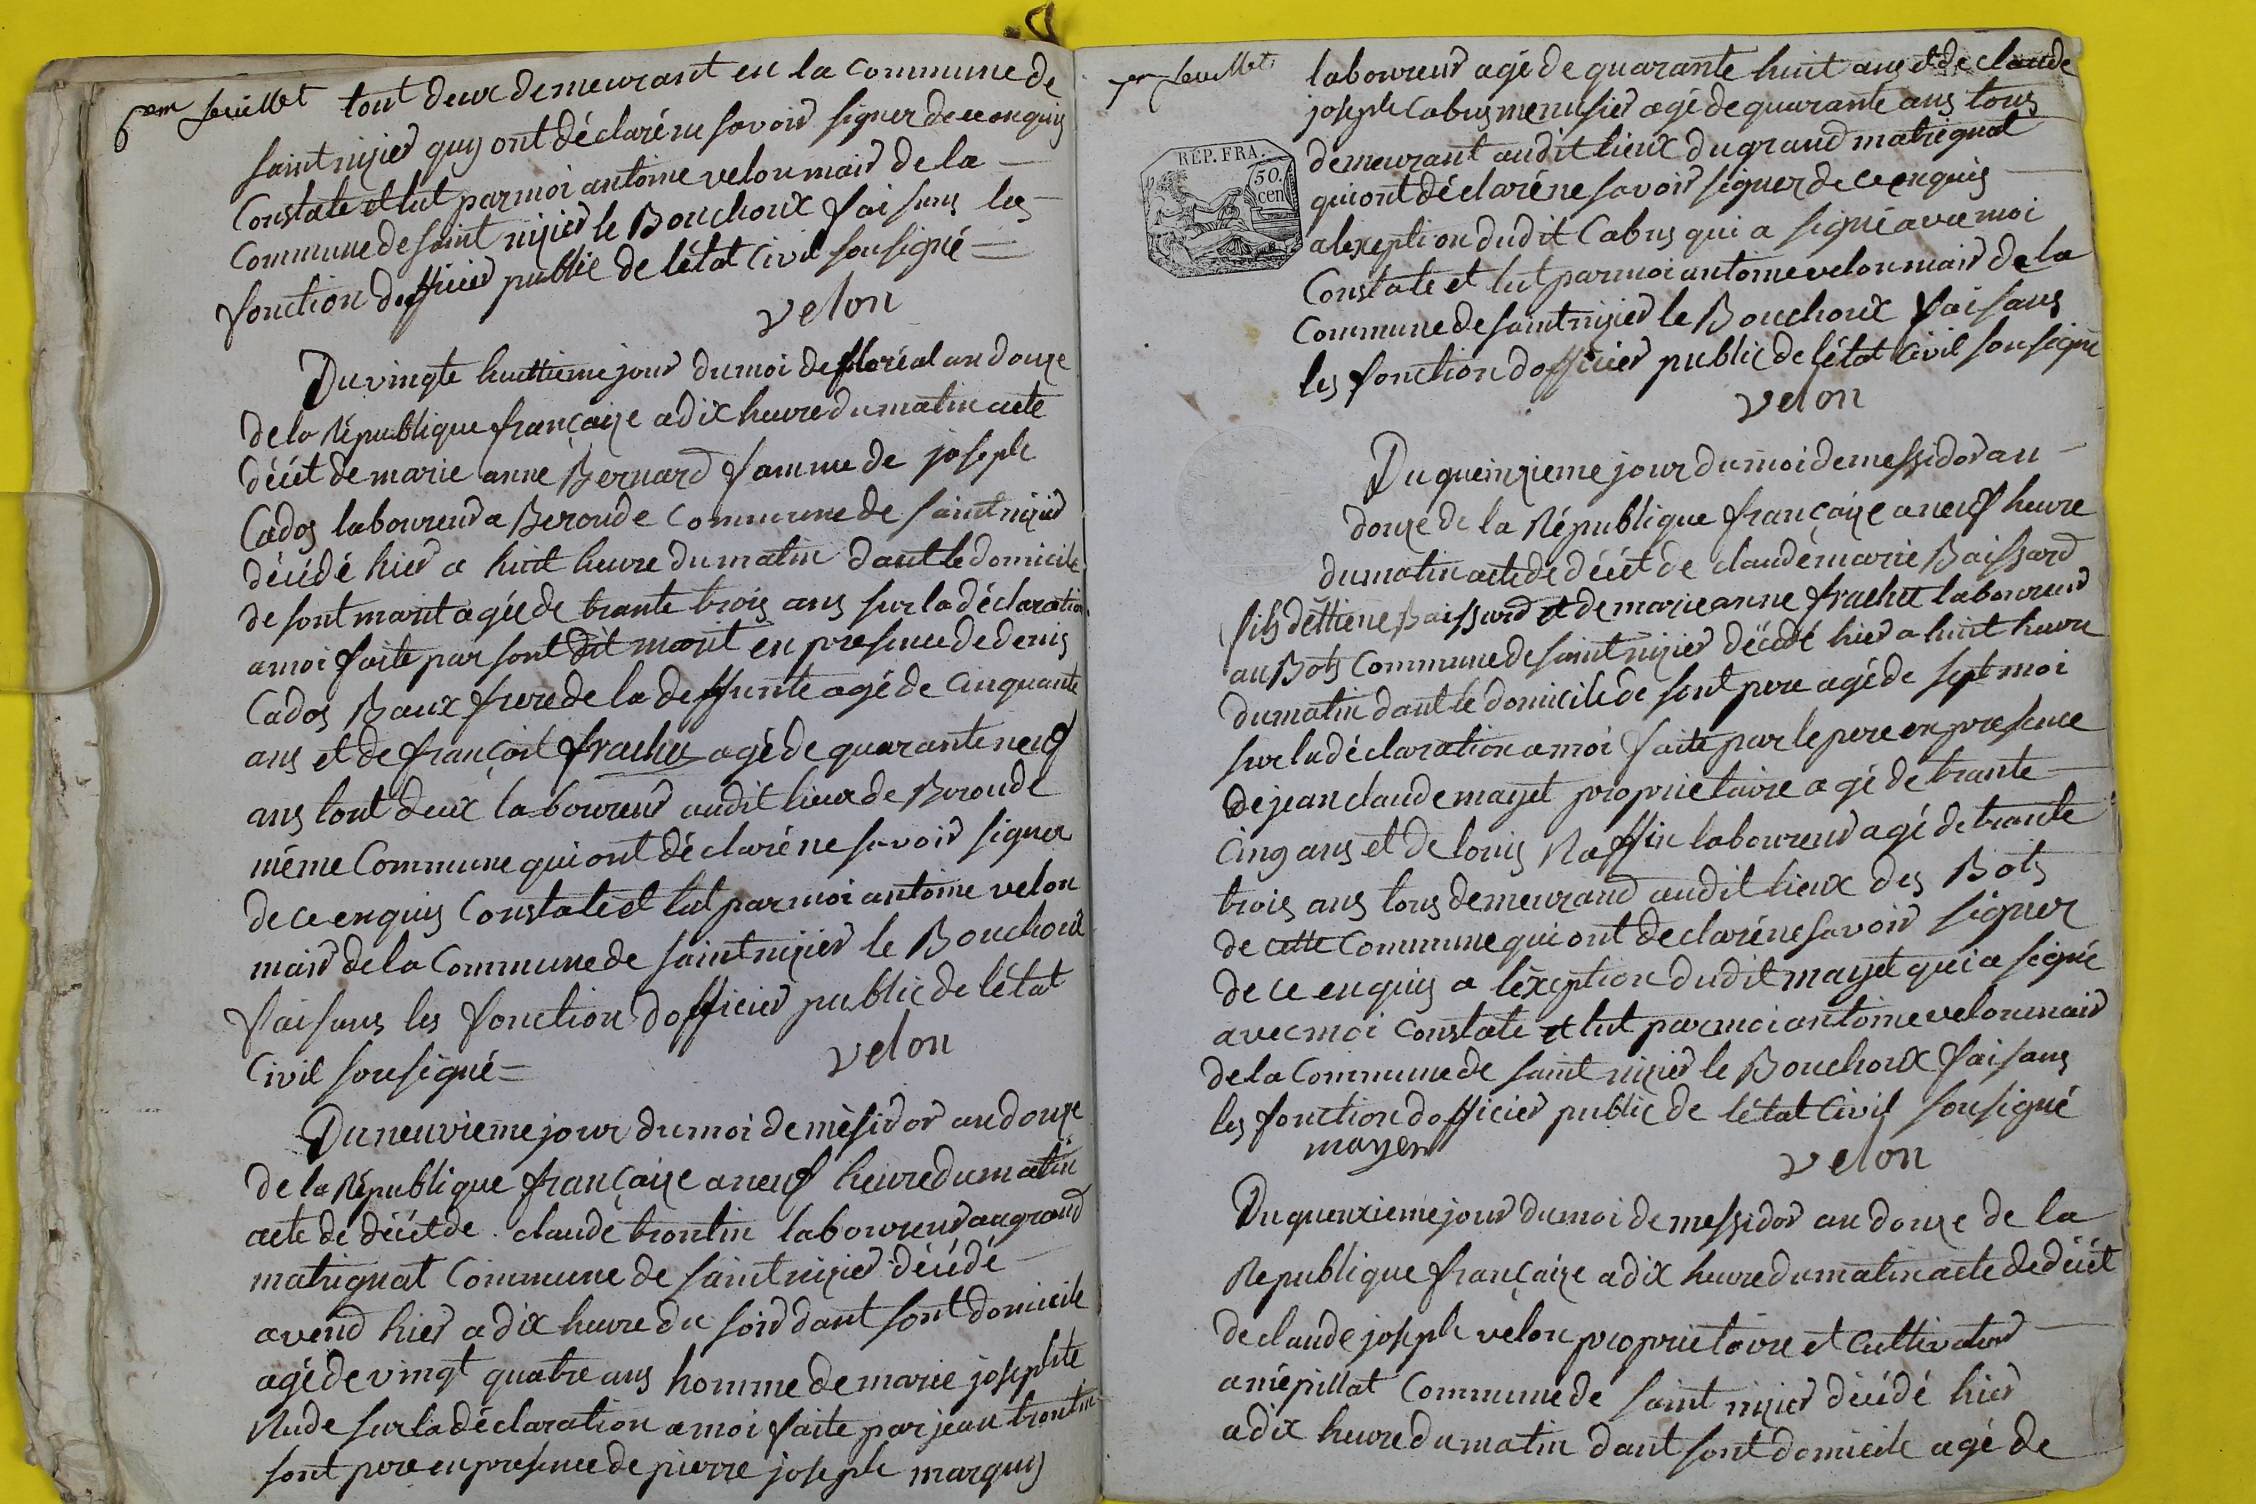 6em feuillet
tout deux demeurant en la commune de
saint nizier quy ont déclaré ne savoir signer de ce enquis
Constate et lut par moi antoine velon mair de la
Commune de saint nizier le Bouchoux faisans les
fonction dofficier public de létat Civil sousigné
velon
Du vingte huittieme jour du moi de floréal an douze
de la République françaize a dix heure du matin acte
décét de marie anne Bernard famme de joseph
Cados laboureur a Beroude commune de saint nizier
décédé hier a huit heure du matin dant le domicile
de sont marit agée de trante trois ans sur la déclaration
a moi faite par sont dit marit en presence de denis
Cados Baux frere de la deffunte agé de cinquante
ans et de françoit frachet agé de quarante neuf
ans tout deux laboureur audit lieux de Beroude
méme Commune qui ont déclaré ne savoir signer
de ce enquis Constate et lut par moi antoine velon
mair de la Commune de saint nizier le Bouchoux
faisans les fonction dofficier public de létat
Civil sousigné
velon
Du neuvieme jour du moi de mèsidor an douze
de la République françaize a neuf heure du matin
acte de décét de claude trontin laboureur au grand
matrignat Commune de saint nizier décédé
avend hier a dix heure du soir dant sont domicile
agé de vingt quatre ans homme de marie josephte
Nude sur la déclaration a moi faite par jean trontin
sont pere en presence de pierre joseph marquis
7em feuillet
RÉP. FRA.
50.
cen
laboureur agé de quarante huit ans et de claude
joseph Cabus menusier agé de quarante ans tous
demeurant audit lieux du grand matrignat
qui ont déclaré ne savoir signer de ce enquis
alexeption dudit Cabus qui a signé avec moi
Constate et lut par moi antoine velon mair de la
Commune de saint nizier le Bouchoux faisans
les fonction dofficier public de létat Civil sousigné
velon
Du queinzieme jour du moi de messidor an
douze de la République françaize a neuf heure
du matin acte de décét de claude marie Baissard
fils dettiene Baissard et de marie anne frachet laboureur
au Bots Commune de saint nizier décédé hier a huit heure
du matin dant le domicile de sont pere agé de sept moi
sur la déclaration a moi faite par le pere en presence
de jean claude mayet proprietaire agé de trante
cinq ans et de louis Naffin laboureur agé de trante
trois ans tous demeurand audit lieux des Bots
de cette Commune qui ont declaré ne savoir signer
de ce enquis a léxeption dudit mayet qui a signé
avec moi Constate et lut par moi antoine velon mair
de la Commune de saint nizier le Bouchoux faisans
les fonction dofficier public de létat Civil sousigné
mayen
velon
Du quenzieme jour du moi de messidor an douze de la
Republique françaize a dix heure du matin acte de décét
de claude joseph velon proprietaire et Cultivateur
a mépillat Commune de saint nizier décédé hier
a dix heure du matin dant sont domicile agé de